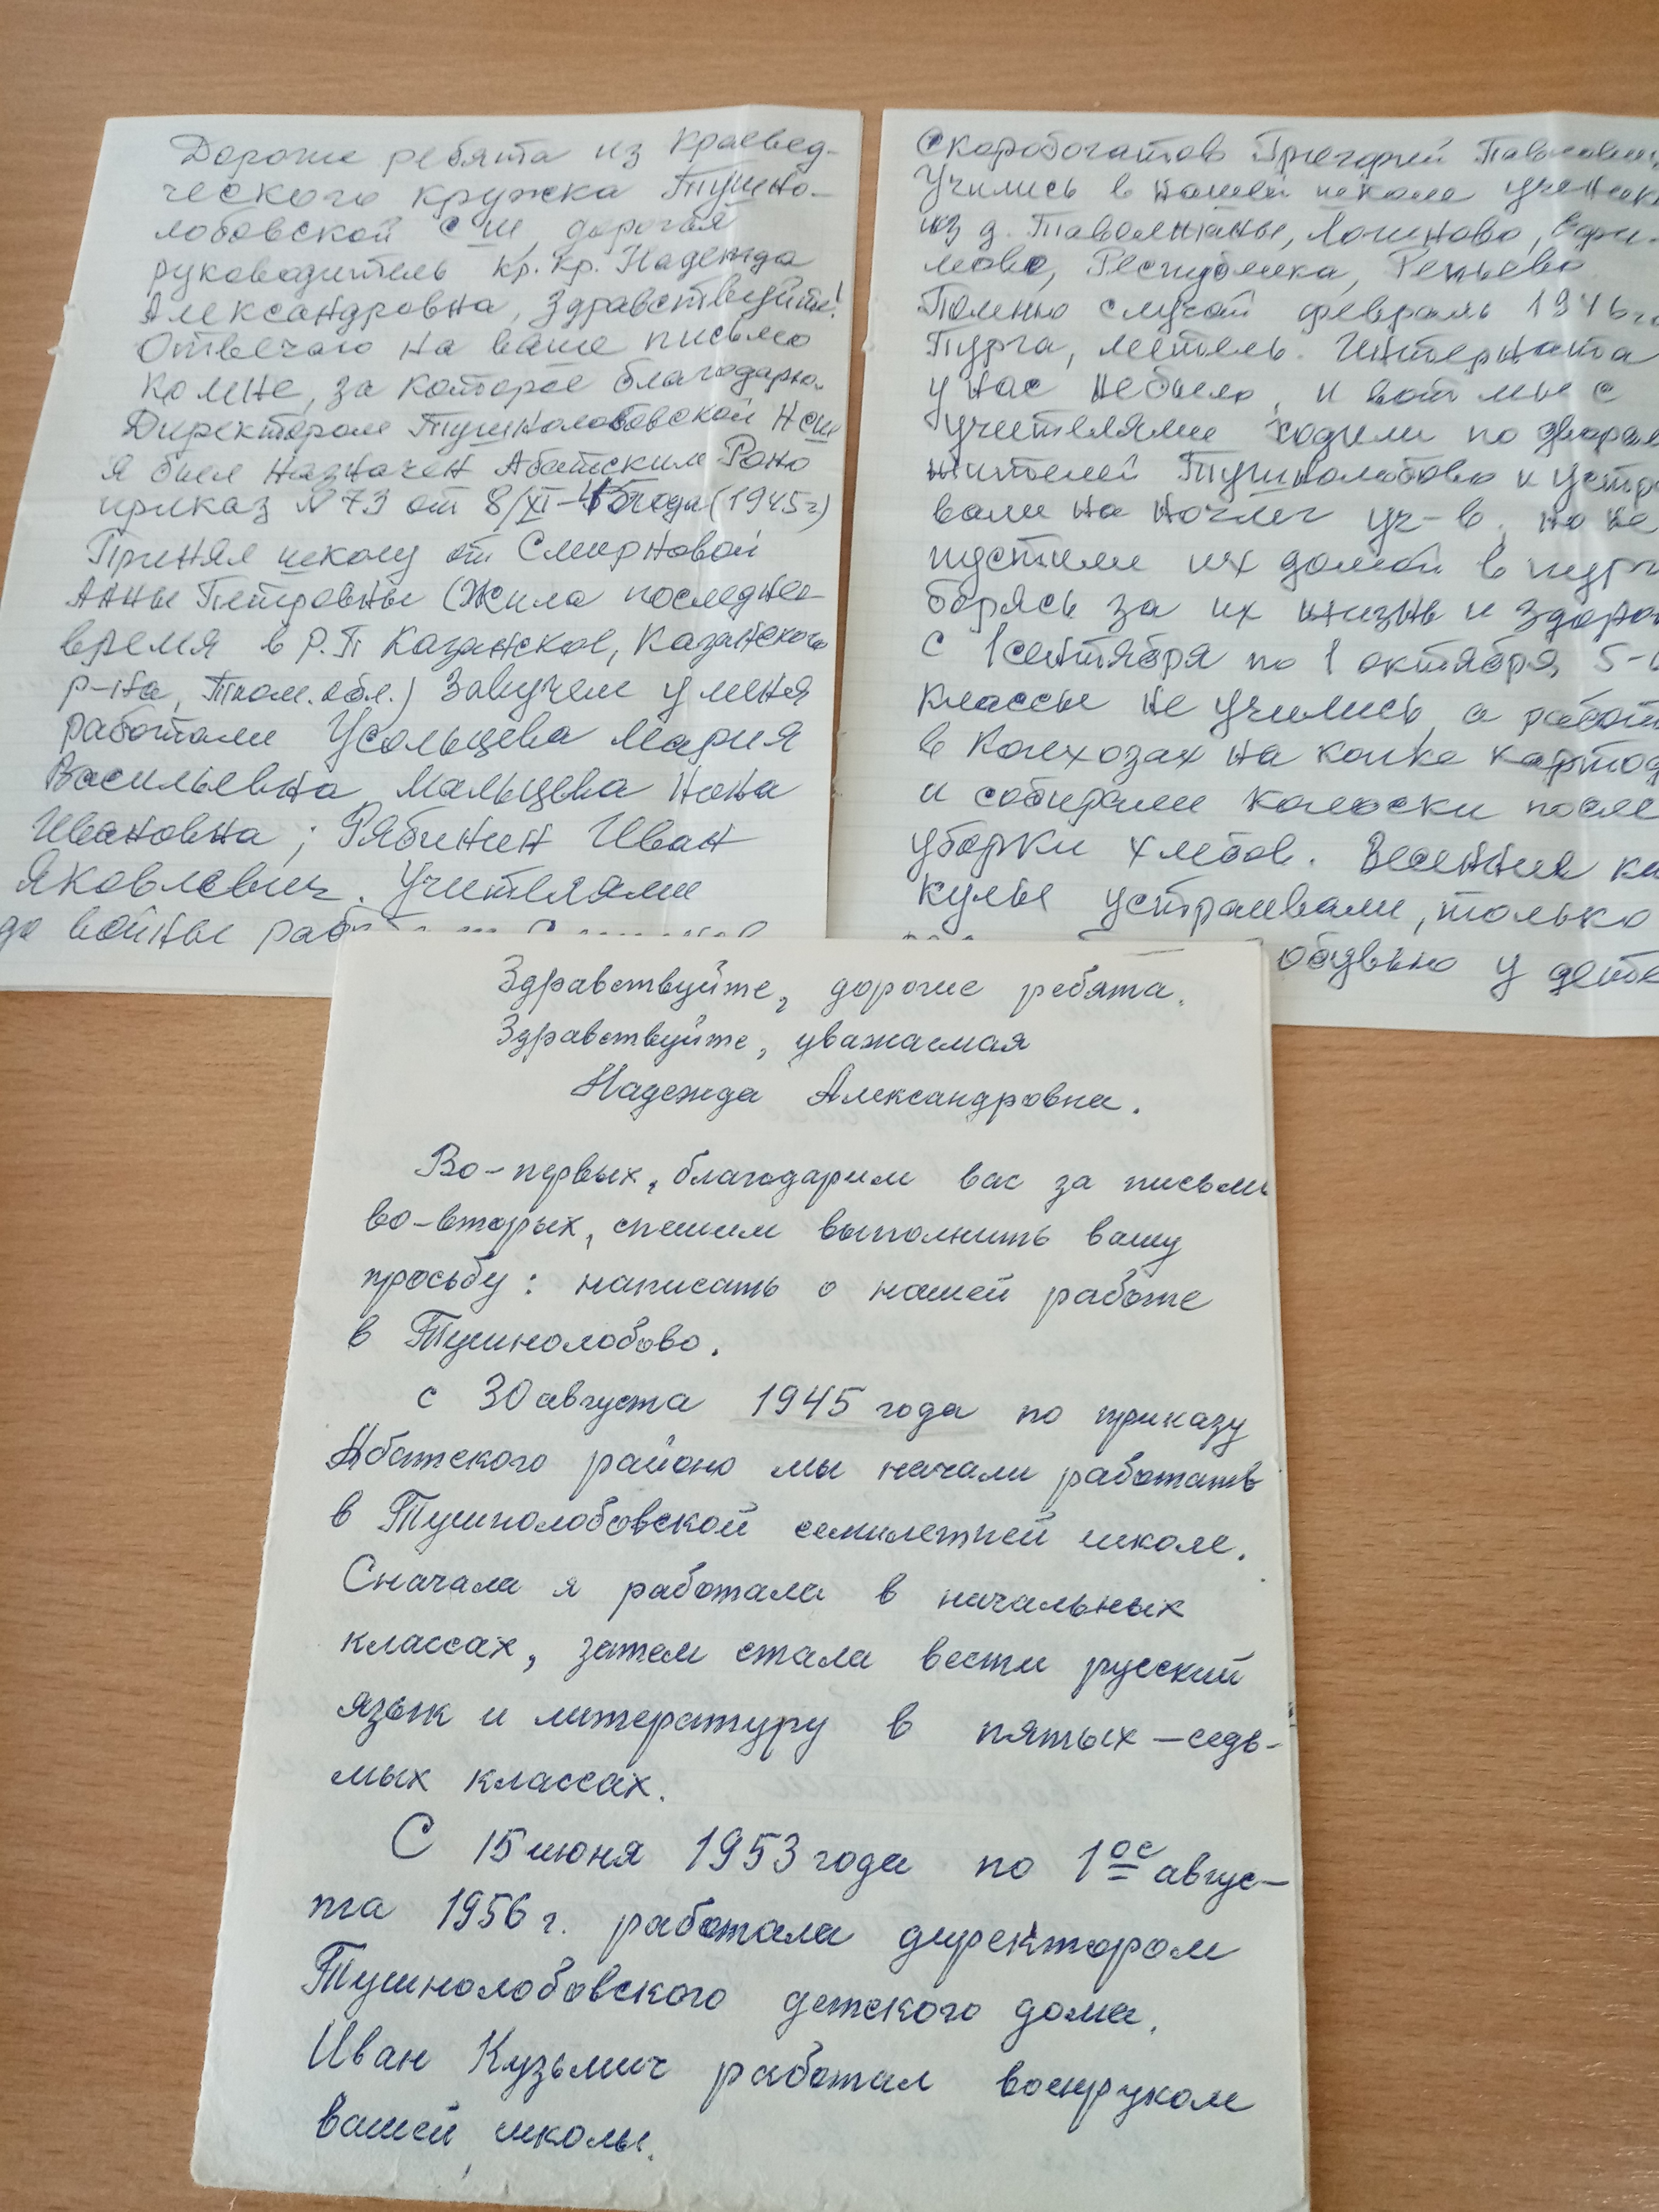 Дорогие ребята из краевед-
ческого кружка Тушно-
лобовской сш, дорогая
руководитель кр. кр. Надежда
Александровна, здравствуйте!
Отвечаю на ваше письмо
ко мне, за которое благодарю.
Директором Тушнолобовской нсш
я был назначен Абатским Роно
приказ №73 от 8/XI-45 года (1945г)
Принял школу от Смирновой
Анны Петровны (Жила последнее
время в р.п Казанское, Казанского
р-на, Тюм. обл.) Завучем у меня
работали Усольцева Мария
Васильевна, Мальцева Нона
Ивановна; Рябинин Иван
Яковлевич. Учителями
до войны
Скоробогатов Григорий
Учились в нашей школе
из д. Таволжаны, Логиново,
Республика, Репьево
Помню случай февраль 1946
Пурга, метель. Интерната
у нас не было, и вот мы с
учителями ходили по дворам
жителей Тушнолобово и
вали на ночлег уч-в, но не
пустили их домой в
борясь за их жизнь и
с 1 сентября по 1 октября 5-
классы не учились, а
в колхозах на копке
и собирали колоски после
уборки хлебов. Весенние
кулы устраивали, только
обувью у
Здравствуйте, дорогие ребята.
Здравствуйте, уважаемая
Надежда Александровна.
Во-первых, благодарим вас за
во-вторых, спешим выполнить вашу
просьбу: написать о нашей работе
в Тушнолобово.
с 30 августа 1945 года по приказу
Абатского районо мы начали работать
в Тушнолобовской семилетней школе.
Сначала я работала в начальных
классах, затем стала вести русский
язык и литературу в пятых – седь-
мых классах.
С 15 июня 1953 года по 1ое авгус-
та 1956 г. работала директором
Тушнолобовского детского дома.
Иван Кузьмич работал военруком
вашей школы.